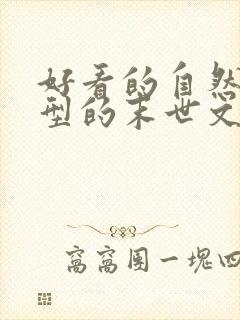 好看的自然
型的末世文
窝窝团一块四